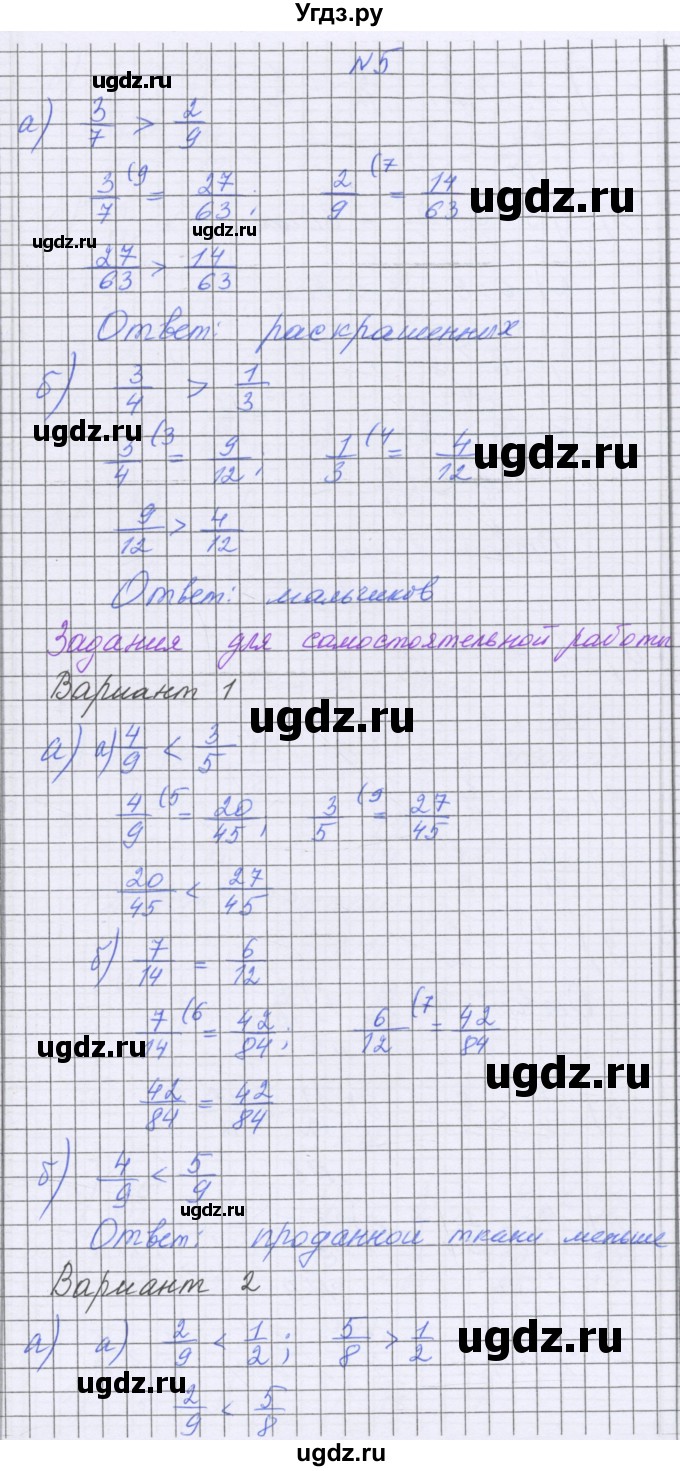 Угдз.ру
ugdz.ru
№5
а) 3/7 > 2/9
3/7 (9 = 27/63; 2/9 (7 = 14/63
ugdz.ru
ugdz.ru
ugdz.ru
27/63 > 14/63
Ответ: раскрашенных
б) 3/4 > 1/3
ugdz.ru
3/4 (3 = 9/12; 1/3 (4 = 4/12
ugdz.ru
9/12 > 4/12
Ответ: мальчиков
Задания для самостоятельной работы
Вариант 1
ugdz.ru
А) а) 4/9 < 3/5
4/9 (5 = 20/45; 3/5 (9 = 27/45
20/45 < 27/45
б) 7/14 = 6/12
7/14 (6 = 42/84; 6/12 (7 = 42/84
ugdz.ru
ugdz.ru
42/84 = 42/84
б) 4/9 < 5/9
ugdz.ru
Ответ: проданной ткани меньше
Вариант 2
а) а) 2/9 < 1/2; 5/8 > 1/2
ugdz.ru
ugdz.ru
2/9 < 5/8
ugdz.ru